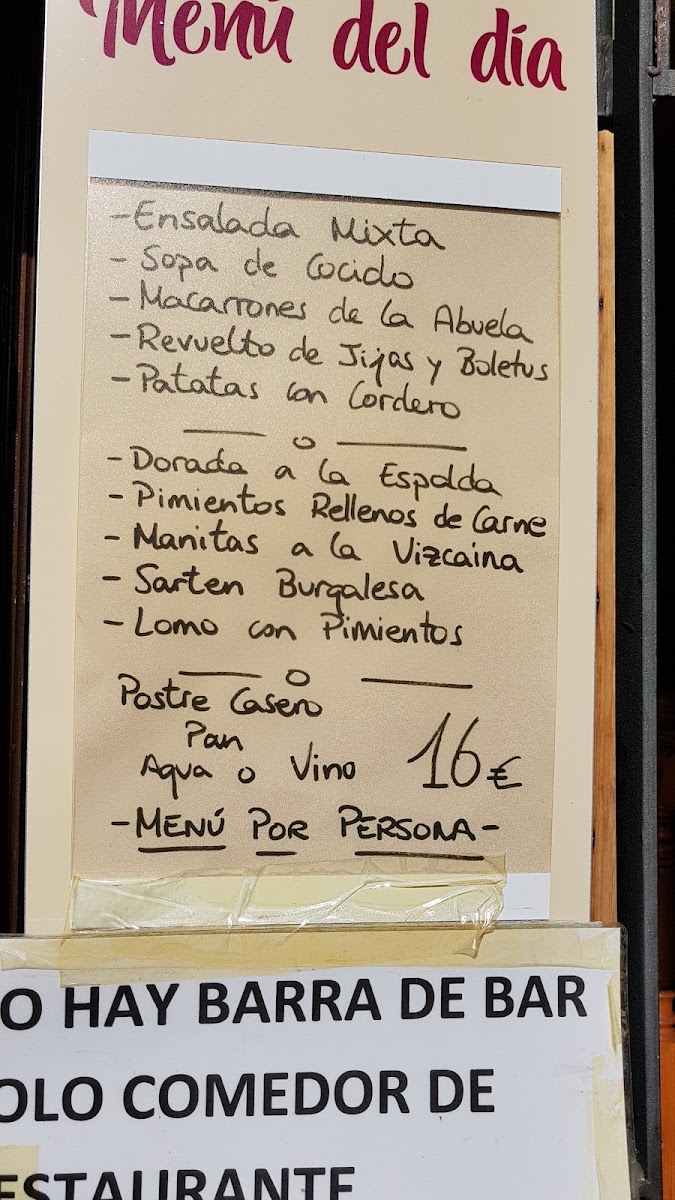 Menú del día
- Ensalada Mixta
- Sopa de Cocido
- Macarrones de la Abuela
- Revuelto de Jijas y Boletus
- Patatas con Cordero
— o —
- Dorada a la Espalda
- Pimientos Rellenos de Carne
- Manitas a la Vizcaina
- Sarten Burgalesa
- Lomo con Pimientos
— o —
Postre Casero
Pan
Agua o Vino 16€
- MENÚ POR PERSONA -
O HAY BARRA DE BAR
OLO COMEDOR DE
ESTAURANTE